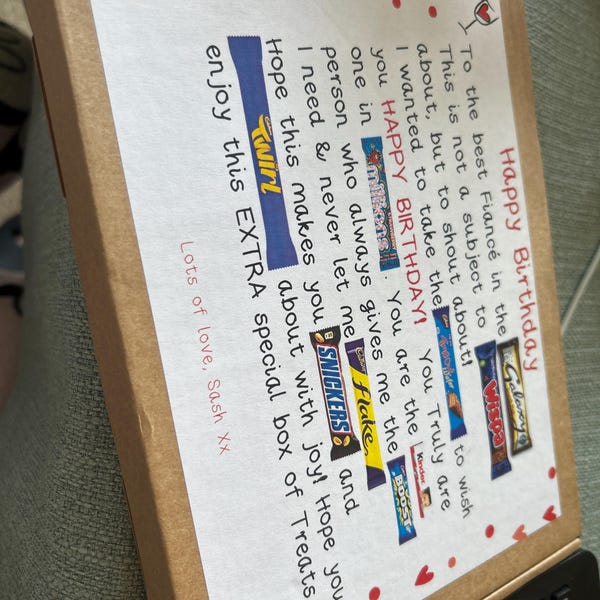 Happy Birthday
To the best Fiancé in the Galaxy
This is not a subject to Wispa
about, but to shout about!
I wanted to take the to wish
you HAPPY BIRTHDAY! You Truly are
one in millions. You are the Kinder
person who always gives me the BOOST
I need & never let me Flake
Hope this makes you SNICKERS and
Twirl about with joy! Hope you
enjoy this EXTRA special box of Treats
Lots of love, Sash xx